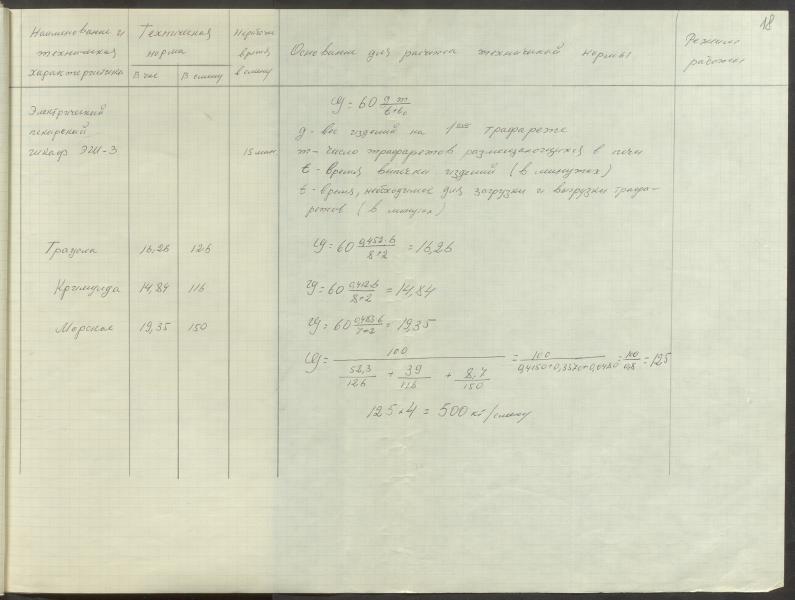 18
Наименование и
техническая
характеристика
Техническая
норма
В час
В смену
Нерабочее
время
в смену
Основание для расчета технической нормы
Режим
работы
Электрический
пекарский
шкаф ЭШ-3
15 мин.
g = 60 g m / t+t₀
g - вес изделий на 1ом трафарете
m - число трафаретов размещающихся в печи
t - время выпечки изделий (в минутах)
t - время, необходимое для загрузки и выгрузки трафа-
ретов (в минутах)
16,26 126 g = 60 0,452·6 / 8+2 = 16,26
14,84 116 g = 60 0,412·6 / 8+2 = 14,84
Морская 19,35 150 g = 60 0,483·6 / 7+2 = 19,35
g = 100 / 52,3/126 + 39/116 + 8,7/150 = 100 / 0,4150+0,3370+0,0480 = 100/0,8 = 125
125 · 4 = 500 кг/смену